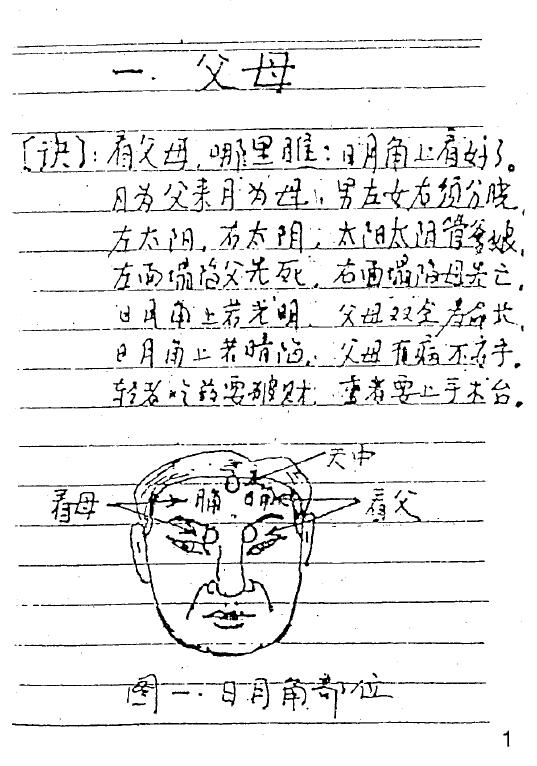 一．父母
〔诀〕：看父母，哪里瞧：日月角上看好了。
日为父来月为母，男左女右须分晓，
左太阳，右太阴，太阳太阴管爹娘，
左面塌陷父先死，右面塌陷母先亡，
日月角上若光明，父母双全寿命长，
日月角上若暗陷，父母有病不离手。
轻者吃药要破财，重者要上手术台。
天中
看母
月角
日角
看父
图一．日月角部位
1